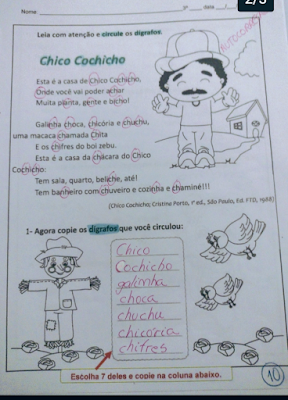 2/3
Nome: ____ 3º ____ data __/__/
AUTOCORREÇÃO
Leia com atenção e circule os dígrafos.
Chico Cochicho
Esta é a casa de Chico Cochicho,
Onde você vai poder achar
Muita planta, gente e bicho!
Galinha choca, chicória e chuchu,
uma macaca chamada Chita
E os chifres do boi zebu.
Esta é a casa da chácara do Chico
Cochicho:
Tem sala, quarto, beliche, até!
Tem banheiro com chuveiro e cozinha e chaminé!!!
(Chico Cochicho; Cristina Porto, 1ª ed., São Paulo, Ed. FTD, 1988)
1- Agora copie os dígrafos que você circulou:
Chico
Cochicho
galinha
choca
chuchu
chicória
chifres
Escolha 7 deles e copie na coluna abaixo.
10